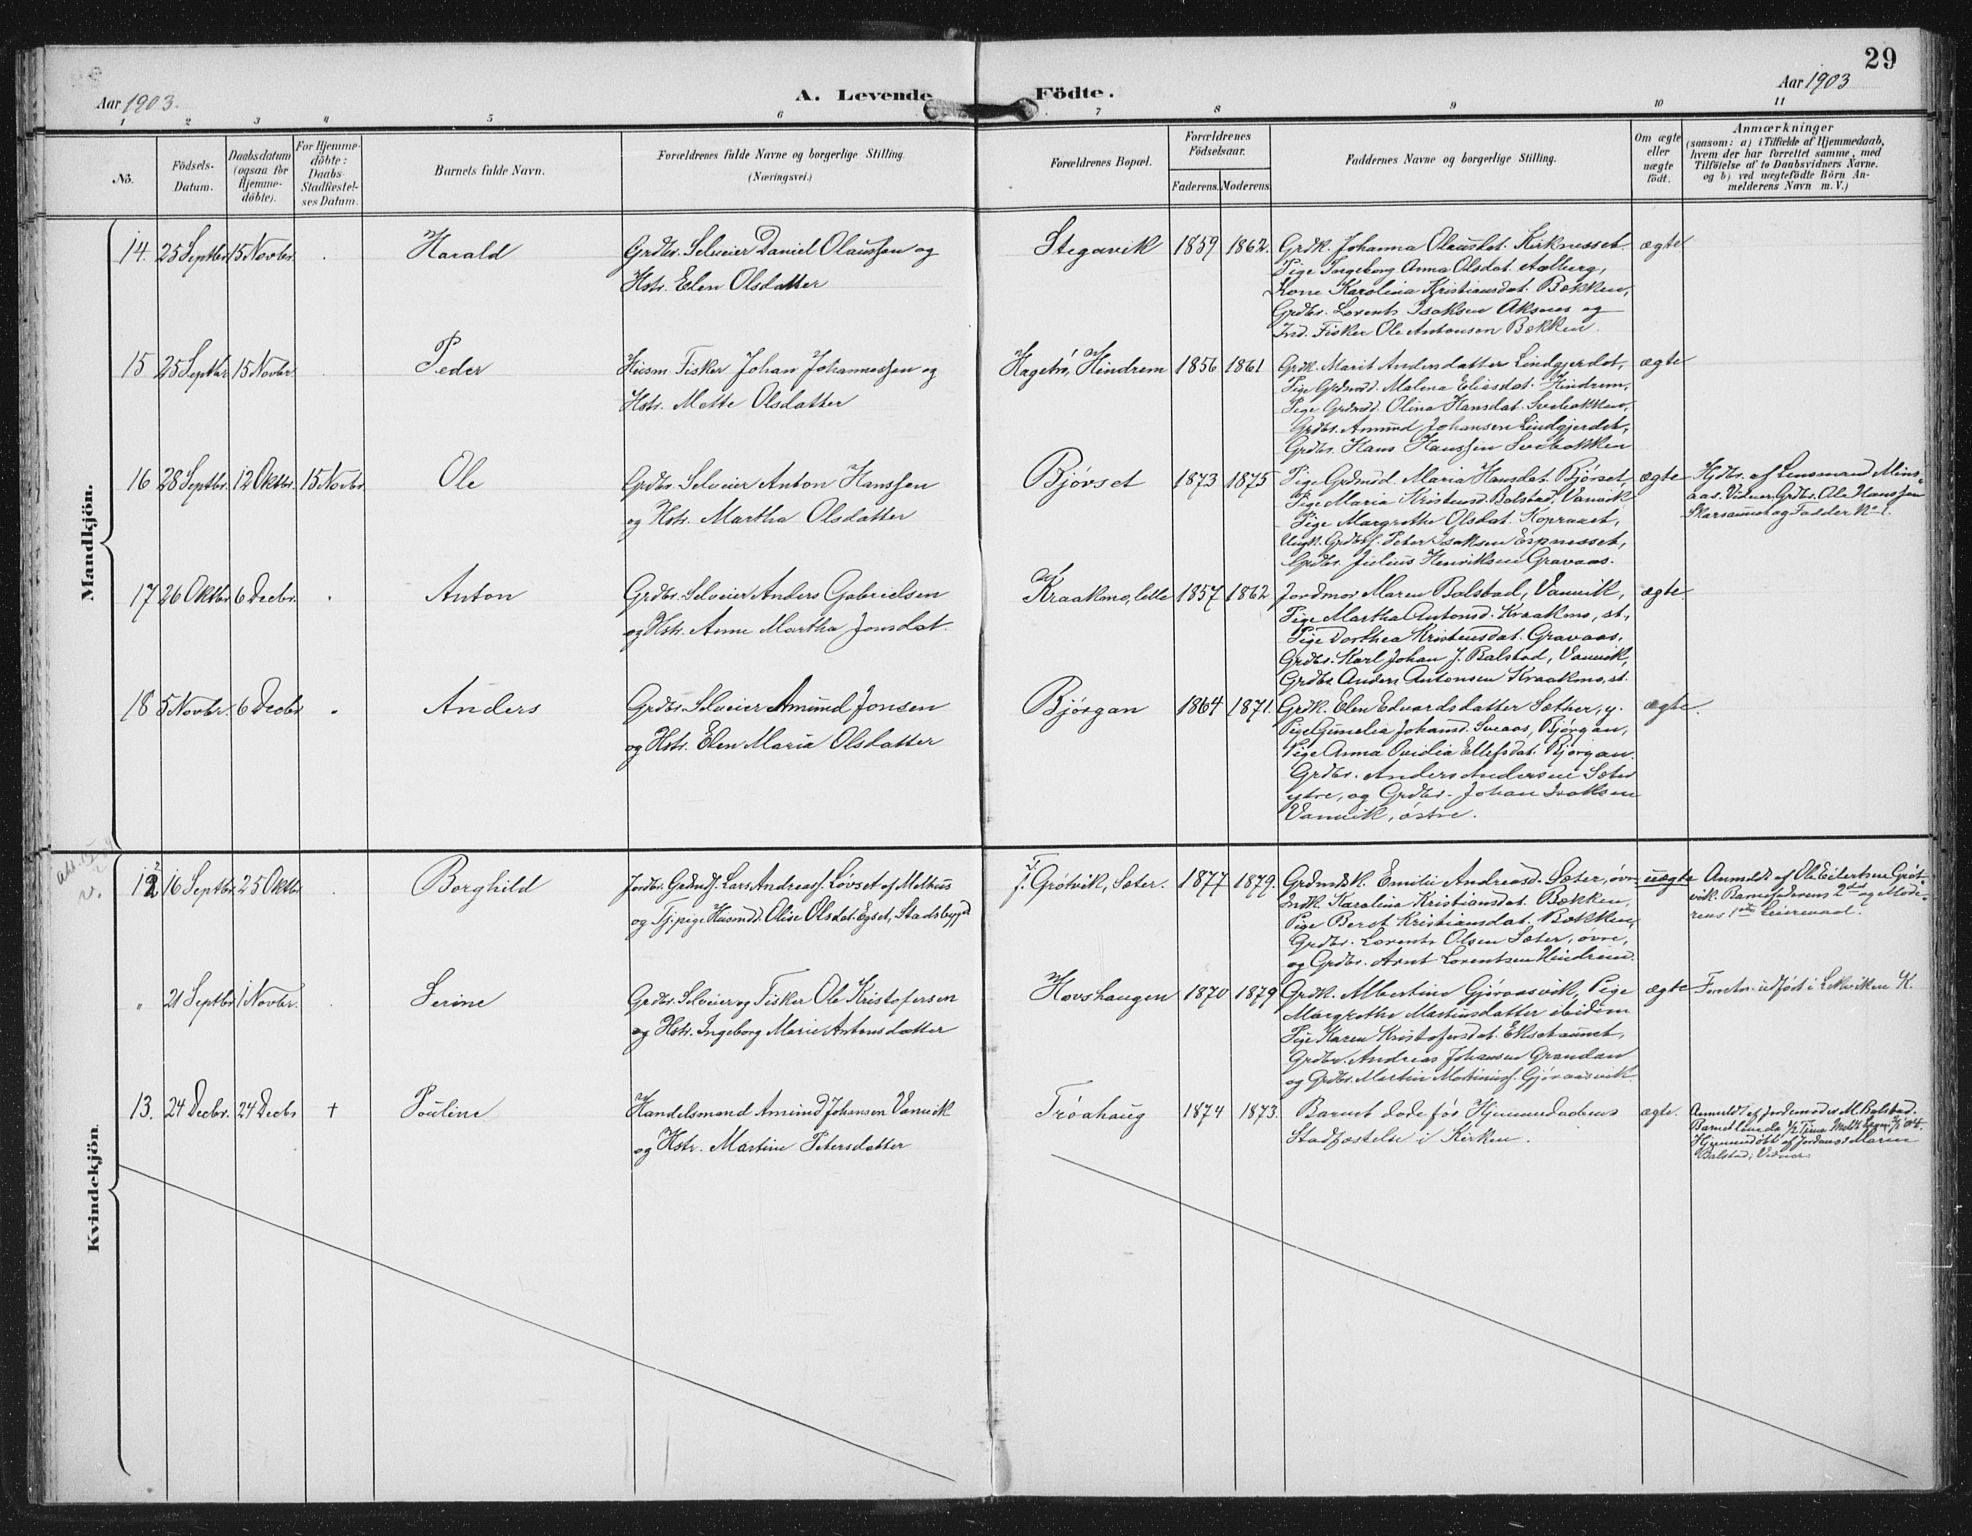 29
Aar 1903.
A. Levende Födte.
Aar 1903
1 2 3 4 5 6 7 8 9 10 11
Nö.
Födsels-Datum.
Daabsdatum (ogsaa for Hjemme-döbte).
For Hjemme-döbte: Daabs-Stadfæstel-ses Datum.
Barnets fulde Navn.
Forældrenes fulde Navne og borgerlige Stilling.
(Næringsvei.)
Forældrenes Bopæl.
Forældrenes Födselsaar.
Faderens. Moderens.
Faddernes Navne og borgerlige Stilling.
Om ægte eller nægte födt.
Anmærkninger
(saasom: a) i Tilfælde af Hjemmedaab, hvem der har forrettet samme, med Tilföielse af to Daabsvidners Navne. og b) ved uægtefödte Börn An-melderens Navn m. V.)
Mandkjön.
14. 25 Septbr. 15 Novbr. Harald
Grdbr. Selveier Daniel Olaussen og
Hstr. Elen Olsdatter
Stegavik 1859 1862.
Grdk. Johanna Olausdat. Kirknesset.
Pige Ingeborg Anna Olsdat. Aalberg,
Kone Karolina Kristiansdat. Bækken,
Grdbr. Lorents Isaksen Aksnes og
Ind. Fisker Ole Antonsen Bækken.
ægte
15 25 Septbr 15 Novbr. Peder
Husm. Fisker Johan Johannessen og
Hstr. Mette Olsdatter
Hagebø, Hindrem 1856 1861
Grdk. Marit Andersdatter Lindgjerdet,
Pige Grdmd. Malena Eliasdat. Hindrem,
Pige Grdmd. Olina Hansdat. Svebakken,
Grdbr. Amund Johansen Lindgjerdet,
Grdbr. Hans Hanssen Svebakken
ægte
16 28 Septbr. 12 Oktbr. 15 Novbr. Ole
Grdbr. Selveier Anton Hanssen
og Hstr. Martha Olsdatter
Bjørset 1873 1875
Pige Grdmd. Maria Hansdat. Bjørset,
Pige Maria Kristensd. Balstad, Vanvik
Pige Margrethe Olsdat. Kopraaet,
Ungk. Grdbrs. Peter Isaksen Espnesset,
Grdbr. Julius Henriksen Gravaas.
ægte
Hjdbt. af Lensmand Mins-
aas. Vidner: Grdbr. Ole Hanssen
Skarsaunet og Fadder No 1.
17 26 Oktbr. 6 Decbr. Anton
Grdbr. Selveier Anders Gabrielsen
og Hstr. Anne Martha Jonsdat.
Kraakmo, lille 1857 1862
Jordmor Maren Balstad, Vanvik,
Pige Martha Antonsd. Kraakmo, st.,
Pige Dorthea Kristensdat. Gravaas,
Grdbr. Karl Johan J. Balstad, Vanvik,
Grdbr. Anders Antonsen Kraakmo, st.
ægte.
18 5 Novbr. 6 Decbr Anders
Grdbr. Selveier Amund Jonsen
og Hstr. Elen Maria Olsdatter
Bjørgan 1864 1871.
Grdk. Elen Edvardsdatter Sæther, y.
Pige Gunelia Johansd. Sveaas, Bjørgan,
Pige Anna Ovidia Ellefsdat. Bjørgan.
Grdbr. Anders Andersen Sæter
ytre, og Grdbr. Johan Isaksen
Vanvik, østre.
ægte.
Kvindekjön.
v.
12 16 Septbr. 25 Oktbr Borghild
Jordbr. Grdmds. Lars Andreass. Løvset af Melhus
og Tjpige Husmd. Olise Olsdat. Egset, Stadsbygd
f. Grötvik, Sæter. 1877 1879.
Grdmdk. Emilie Andreasd. Sæter, øvre
Indk. Karolina Kristiansdat. Bækken,
Pige Beret Kristiansdat. Bækken,
Grdbr. Lorents Olsen Sæter, øvre,
og Grdbr. Arnt Lorentsen Hindrem.
uægte
Anmeldt af Ole Eilertsen Gröt-
vik. Barnefaderens 2det og Mode-
rens 1ste Leiermaal.
" 21 Septbr. 1 Novbr. Serine
Grdbr. Selveier og Fisker Ole Kristofersen
og Hstr. Ingeborg Marie Antonsdatter
Hovshaugen 1870 1879
Grdk. Albertine Gjøraasvik, Pige
Margrethe Martinusdatter ibidem
Pige Karen Kristofersdat. Eksetaunet,
Grdbr. Andreas Johansen Grandan
og Grdbr. Martin Martinuss. Gjøraasvik.
ægte
Forretn. udført i Leksviken K.
13. 24 Decbr. 24 Decbr + Pauline
Handelsmand Amund Johansen Vanvik
og Hstr. Martine Petersdatter
Trøahaug 1874 1873.
Barnet døde før Hjemmedaabens
Stadfæstelse i Kirken.
ægte.
Anmeldt af Jordemoder M. Balstad.
Barnet levede 1/2 Time
Hjemmedøbt af Jordemoder Maren
Balstad; Vidner: